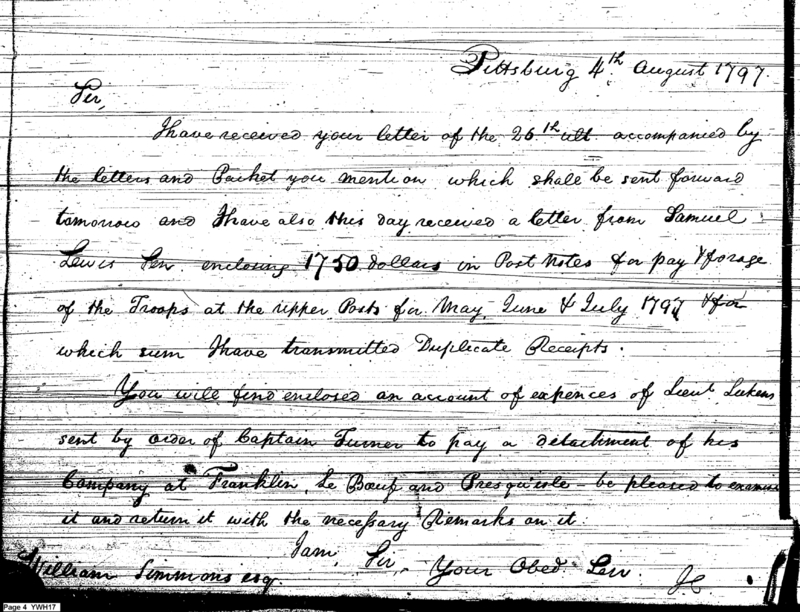 Pittsburg 4th August 1797.
Sir,
I have received your letter of the 26th ult accompanied by
the letters and Packet you mention which shall be sent forward
tomorrow and I have also this day received a letter from Samuel
Lewis Sen. enclosing 1750 dollars in Post Notes for pay & forage
of the Troops at the upper Posts for May, June & July 1797 & for
which sum I have transmitted Duplicate Receipts.
You will find enclosed an account of expences of Lieut. Lukens
sent by order of Captain Turner to pay a detachment of his
Company at Franklin, Le Bœuf and Presquisle - be pleased to examine
it and return it with the necessary Remarks on it.
I am, Sir, Your Obed. Serv.
William Simmons esq. JC
Page 4 YWH17